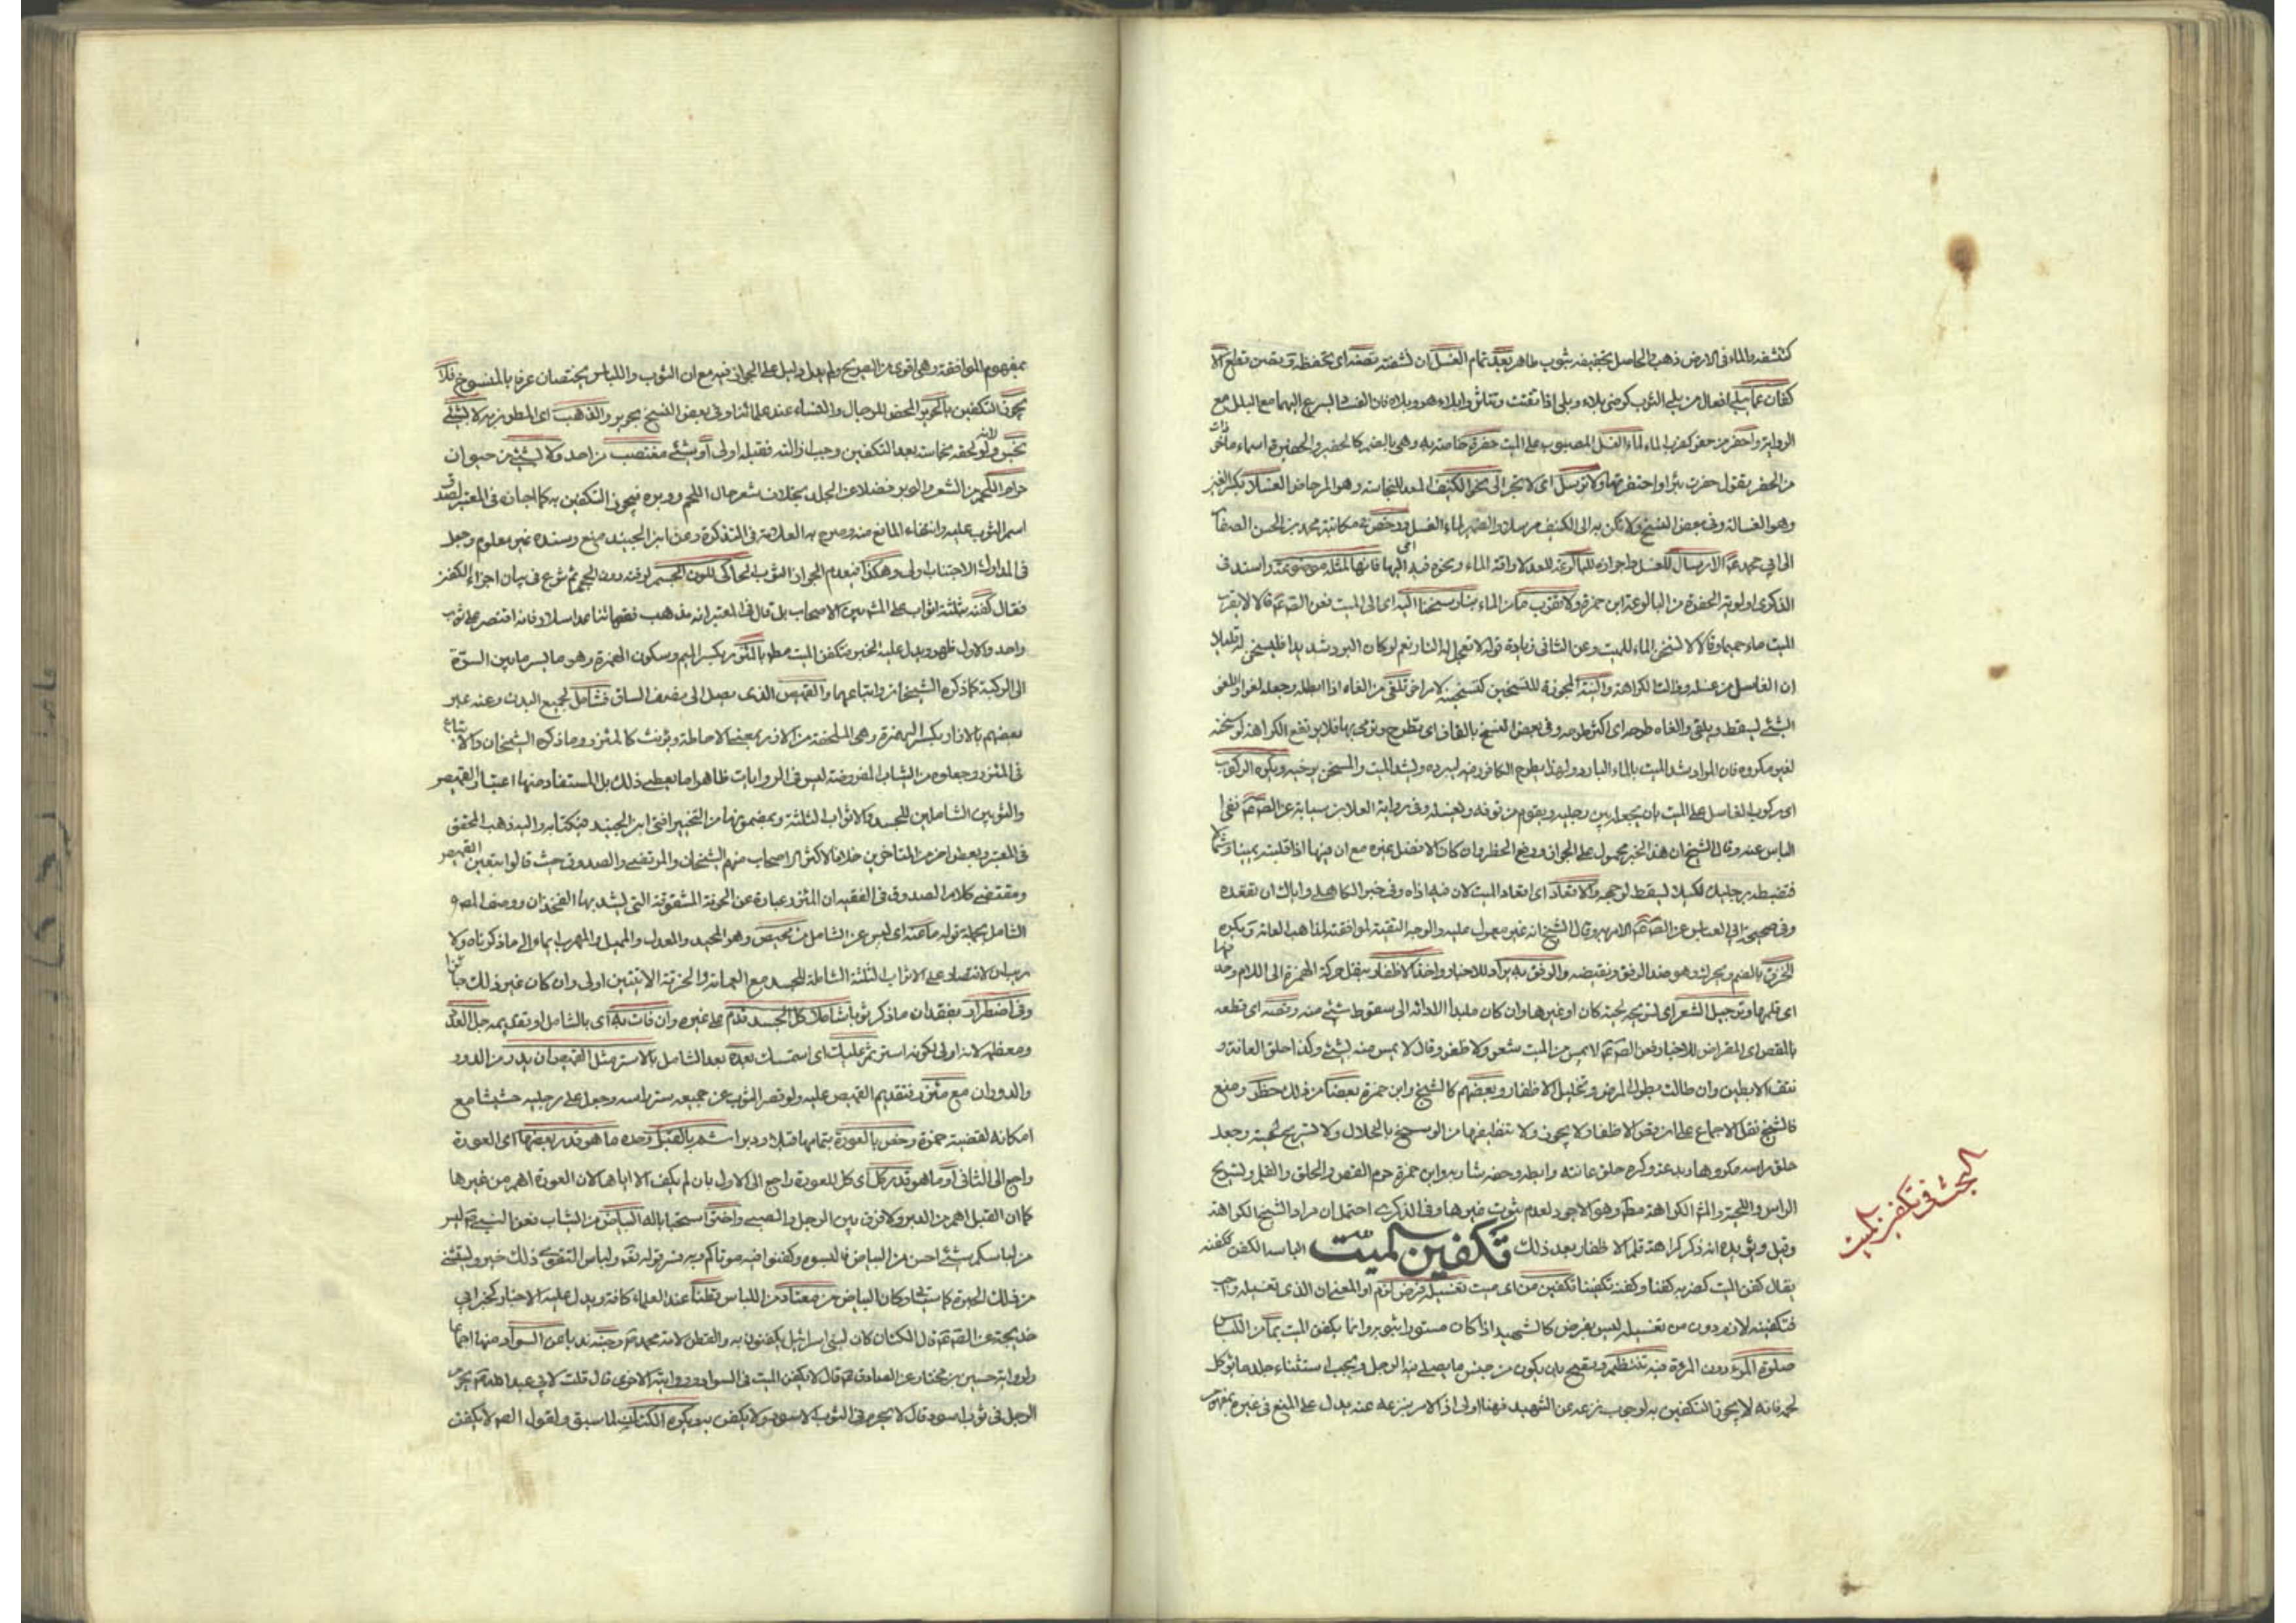 كنشفه والماء في الارض ذهب والحاصل تخفيفه بثوب طاهر بعد تمام الغسل ان نشفته تصنه اي تحفظه وتصن قطع الا
كفان عما يبلي افعال من بلي الثوب كرضي بلاء وبلى اذا تفتت وتناثر وابلاه هو وبلاه فان الفساد يسرع اليها مع البلل مع
الرواية واحفر من حفر كضرب الماء لماء الغسل المصبوب على الميت حفرة خاصة به وهي بالضم كالحفير والحفيرة اسماء ماخوذات
من الحفر يقول حفرت بئرا واحتفرتها ولا ترسل اي لا تجر الى نحو الكنيف المعد للنجاسة وهو المرحاض الغسالة بكسر الغير
وهو الغسالة وفي بعض النسخ ولا تكن به الى الكنيف مرسلا والضمير لماء الغسل ورخص في مكاتبة محمد بن الحسن الصفار
الى ابي محمد ع الارسال للغسل لبالوعة للعدلاراقة الماء ونحوه فيه اليها فانها لمثله موضوعة واسند في
الذكرى اولوية الحفرة من البالوعة ابن حمزة ولا تقرب من الماء بنار سخنا اليه اي الى الميت فعن الصم قالا لا يقرب
الميت ماء حميما وقالا لا تسخن الماء للميت وعن الثاني زيادة قوله لا تعجل له النار نعم لو كان البرد شديدا فليسخن له قليلا
ان الغاسل من غسله وقالت الكراهة والنية المجوزة للتسخين كتسخينه لامر اخر تلغى من الغاه اذا ابطله وجعله لغوا وتلغى
الشئ ليسقط ويلقى والغاه طرحه اي اكثر طرحه وفي بعض النسخ بالقاف اي تطرح وترمى بها فلا يرتفع الكراهة لو سخنه
لغير مكروه فان المراد شد الميت بالماء البارد ولهذا يطرح الكافور فيه ليبرده ويشد الميت والمسخن يرخيه ويكره الركوب
اي ركوب الغاسل على الميت بان يجعله بين رجليه ويقوم من فوقه ويغسله وفي رواية العلا بن سيابة عن الصم نفي
الباس عنه وقال الشيخ ان هذا الخبر محمول على الجواز ورفع الحظر وان كان الافضل غيره مع ان فيها اذا قلبته يمينا وشمالا
فتضبطه برجليك لكيلا يسقط لوجهه والاقعاد اي اقعاد الميت لان فيه اذاه وفي خبر الكاهلي واياك ان تقعده
وفي صحيح ابي العباس عن الصم الامر به وقال الشيخ انه غير معمول عليه والوجه التقية لموافقته لمذاهب العامة ويكره
الخرق بالضم ويحرك وهو ضد الرفق ونقيضه والرفق به يراد للاخبار واخذ الاظفار بنقل حركة الهمزة الى اللام وحذفها
اي قلمها وترجيل الشعر اي تسريحه لحيته كان او غيرها وان كان ملبدا لادائه الى سقوط شئ منه وقصه اي قطعه
بالمقص اي المقراض للاخبار فعن الصم لا يمس من الميت شعر ولا ظفر وقال لا يمس منه شئ وكذا حلق العانة و
نتف الابطين وان طالت بطول المرض وتخليل الاظفار وبعضهم كالشيخ وابن حمزة بعضا من ذلك حظر ومنع
فالشيخ نقل الاجماع على ان قص الاظفار لا يجوز ولا تنظيفها من الوسخ بالخلال ولا تسريح لحيته وجعل
حلق راسه مكروها وبدعة وكره حلق عانته وابطه وحف شاربه وابن حمزة حرم القص والحلق والقلم وتسريح
الراس واللحية والمتن الكراهة مط وهو الاجود لعدم ثبوت غيرها وفي الذكرى احتمل ان مراد الشيخ الكراهة
وقيل ويؤيده انه ذكر كراهة قلم الاظفار بعد ذلك تكفين الميت الباسه الكفن كتكفينه
يقال كفن الميت كضربه كفنا وكفنه تكفينا تكفين من اي ميت تغسيله فرض لزم او المعنى ان الذي تغسيله واجب
فتكفينه لازم دون من تغسيله ليس بفرض كالشهيد اذا كان مستورا بثوبه وانما يكفن الميت بما من اللباس
صلوة المرء دون المرءة فيه تنتظم وتصح بان يكون من جنس ما يصلي فيه الرجل ويجب استثناء جلد ما يؤكل
لحمه فانه لا يجوز التكفين به لوجوب نزعه عن الشهيد فهنا اولى اذ الامر بنزعه عنه يدل على المنع في غيره بمفهوم
البحث في تكفين الميت
بمفهوم الموافقة وهي اقوى من الصريح ولم يدل دليل على الجواز فيه مع ان الثوب واللباس يختصان عرفا بالمنسوج فلا
يجوز التكفين بالحرير المحض للرجال والنساء عند علمائنا وفي بعض النسخ بحرير والذهب اي المطرز به ولا بشئ
نجس ولو لحقه نجاسة بعد التكفين وجب ازالته فقبله اولى او بشئ مغتصب من احد ولا بشئ من حيوان
حرام اللحم من الشعر والوبر فضلا عن الجلد بخلاف شعر حلال اللحم ووبره فيجوز التكفين به كما اجازه في المعتبر لصدق
اسم الثوب عليه وانتفاء المانع منه وصرح به العلامة في التذكرة وعن ابن الجنيد منع وسنده غير معلوم وجعل
في المدارك الاجتناب اولى وهكذا في عدم الجواز الثوب الحاكي للون الجسم لرقته دون الحجم ثم شرع في بيان اجزاء الكفن
فقال كفنه بثلثة اثواب على المشهور بين الاصحاب بل قال في المعتبر انه مذهب فقهائنا عدا سلار فانه اقتصر على ثوب
واحد والاول اظهر ويدل عليه الخبر فتكفن الميت مط بالمئزر بكسر الميم وسكون الهمزة وهو ما يستر ما بين السرة
الى الركبة كما ذكره الشيخان واتباعهما والقميص الذي يصل الى نصف الساق فشامل لجميع البدن وعنه عبر
بعضهم بالازار بكسر الهمزة وهي الملحفة من الازر بمعنى الاحاطة ويؤنث كالمئزر وما ذكره الشيخان والاتباع
في المئزر وجعلوه من الثياب المفروضة ليس في الروايات ظاهرا ما يعطي ذلك بل المستفاد منها اعتبار القميص
والثوبين الشاملين للجسد والاثواب الثلثة وبمضمونها من التخيير افتى ابن الجنيد في كتابه واليه ذهب المحقق
في المعتبر وبعض اخر من المتاخرين خلافا لاكثر الاصحاب منهم الشيخان والمرتضى والصدوق حيث قالوا بتعين القميص
ومقتضى كلام الصدوق في الفقيه ان المئزر عبارة عن الخرقة المشقوقة التي يشد بها الفخذان ووصف المص
الشامل بجملة قوله ما عنه اي ليس عن الشامل من محيص وهو المحيد والمعدل والمميل والمهرب ايماء الى ما ذكرناه ولا
ريب ان الاقتصار على الاثواب الثلثة الشاملة للجسد مع العمامة والخرقة الاتيتين اولى وان كان غير ذلك جائزا
وفي اضطرار بفقدان ما ذكر ثوبا شاملا كل الجسد قدم على غيره وان فات به اي بالشامل او تقديمه جل العدد
ومعظمه لانه اولى لكونه استر ثم عليك اي استمسك بعده بعد الشامل بالاستر مثل القميص ان يدر من الدور
والدوران مع مئزر فتقديم القميص عليه ولو قصر الثوب عن جميعه ستر راسه وجعل على رجليه حشيشا مع
امكانه لقضية حمزة وخص بالعورة بتمامها قبلا ودبرا استر بالقبل وحده ما هو قدر بعضها اي العورة
راجع الى الثاني او ما هو قدر كل اي كل للعورة راجع الى الاول بان لم يكف الا اياها لان العورة اهم من غيرها
كما ان القبل اهم من الدبر ولا فرق بين الرجل والصبي واختر استحبابا له البياض من الثياب فعن النبي ص ليس
من لباسكم شئ احسن من البياض فالبسوه وكفنوا فيه موتاكم وبه فسر قوله تع ولباس التقوى ذلك خير ويستثنى
من ذلك الحبرة كما سياتي وكان البياض من معتاد من اللباس قطنا عند العلماء كافة ويدل عليه الاخبار كخبر ابي
خديجة عن الصم قال الكتان كان لبني اسرائيل يكفنون به والقطن لامة محمد ص وجنبه ندبا عن السواد منها اجماعا
ولرواية حسين بن مختار عن الصادق ع قال لا يكفن الميت في السواد وروايته الاخرى قال قلت لابي عبد الله ع يحرم
الرجل في ثوب اسود قال لا يحرم في الثوب الاسود ولا يكفن به ويكره الكتان لما سبق ولقول الصم لا يكفن